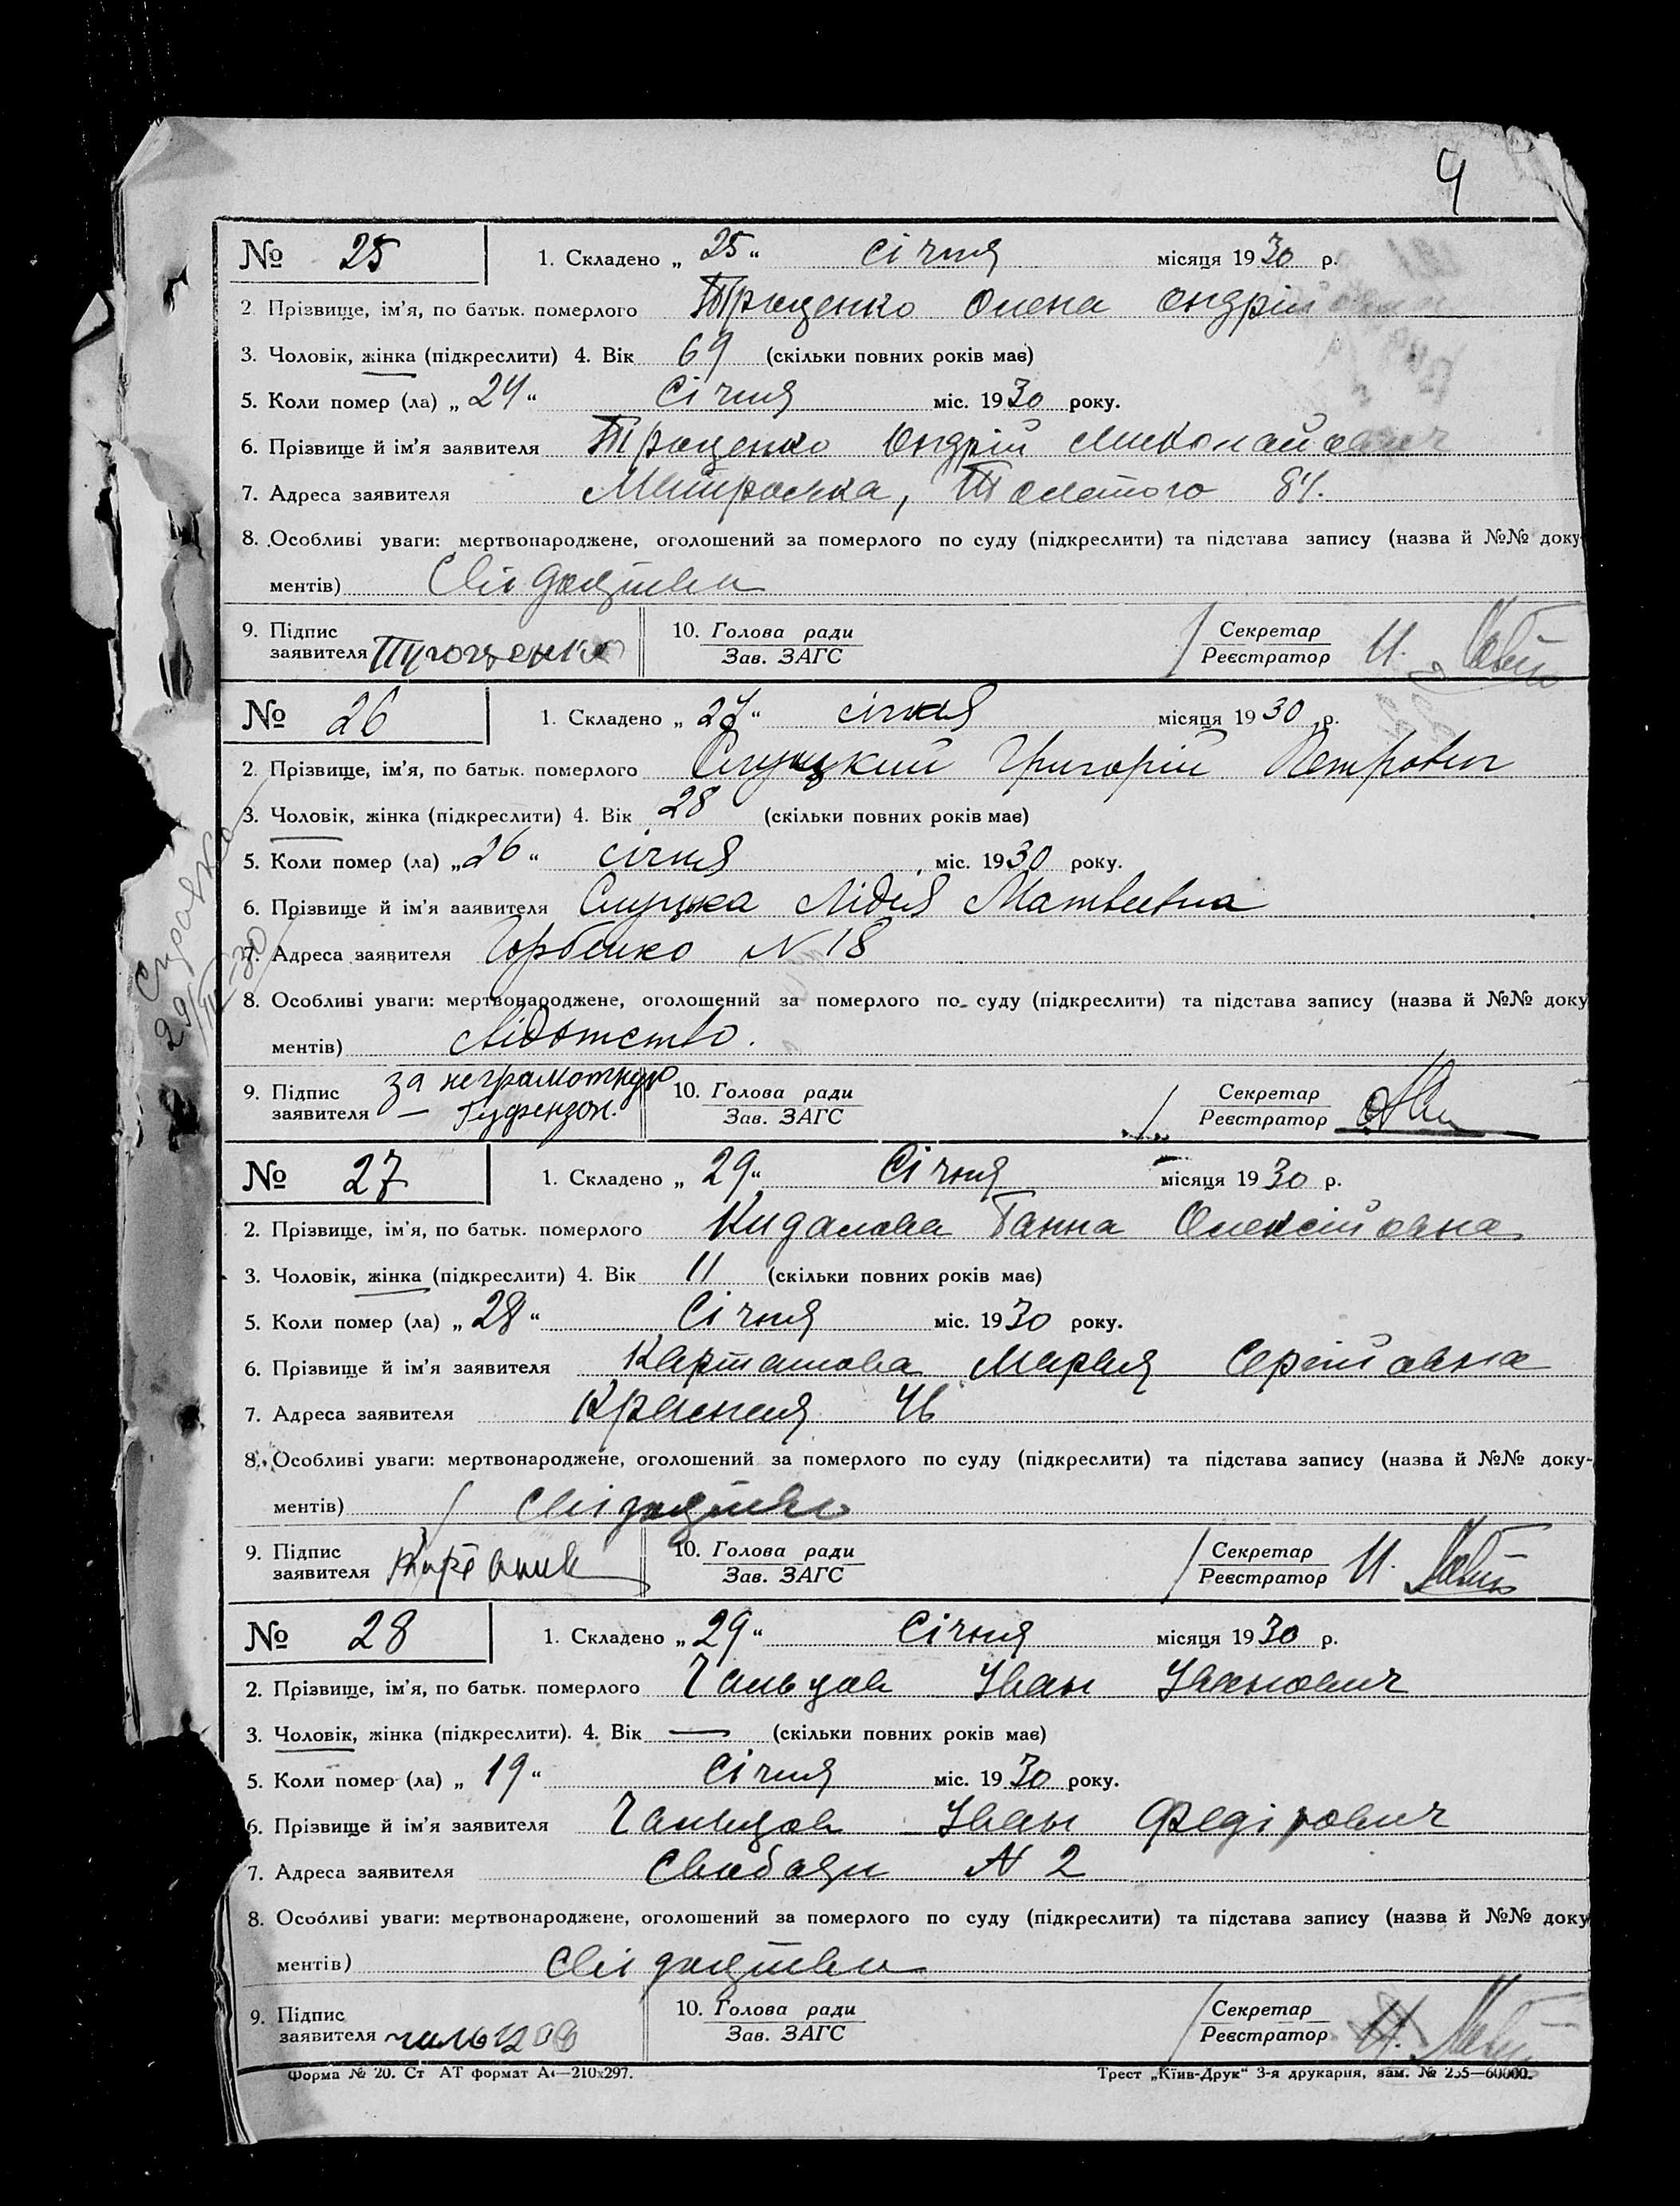 4
№ 25 1. Складено „ 25 “ січня місяця 1930 р.
2. Прізвище, ім'я, по батьк. померлого Троценко Олена Ондрій
3. Чоловік, жінка (підкреслити) 4. Вік 69 (скільки повних років має)
5. Коли помер (ла) „ 24 “ Січня міс. 1930 року.
6. Прізвище й ім'я заявителя Троценко Ондрій Миколайович
7. Адреса заявителя Толстого 84.
8. Особливі уваги: мертвонароджене, оголошений за померлого по суду (підкреслити) та підстава запису (назва й №№ доку
ментів)
9. Підпис 10. Голова ради Секретар
заявителя Троценко Зав. ЗАГС Реєстратор
№ 26 1. Складено „ 27 “ січня місяця 1930 р.
2. Прізвище, ім'я, по батьк. померлого Слуцкий Григорій Петрович
3. Чоловік, жінка (підкреслити) 4. Вік 28 (скільки повних років має)
5. Коли помер (ла) „ 26 “ січня міс. 1930 року.
6. Прізвище й ім'я заявителя Слуцка Лідія Матвеевна
7. Адреса заявителя Горбенко N 18
8. Особливі уваги: мертвонароджене, оголошений за померлого по суду (підкреслити) та підстава запису (назва й №№ доку
ментів)
Справка
29/III-30
9. Підпис за неграмотную 10. Голова ради Секретар
заявителя — Зав. ЗАГС Реєстратор
№ 27 1. Складено „ 29 “ Січня місяця 1930 р.
2. Прізвище, ім'я, по батьк. померлого Кидалова Ганна Олексійовна
3. Чоловік, жінка (підкреслити) 4. Вік 11 (скільки повних років має)
5. Коли помер (ла) „ 28 “ Січня міс. 1930 року.
6. Прізвище й ім'я заявителя Карташова Мария Сергійовна
7. Адреса заявителя Красная 46
8. Особливі уваги: мертвонароджене, оголошений за померлого по суду (підкреслити) та підстава запису (назва й №№ доку-
ментів)
9. Підпис 10. Голова ради Секретар
заявителя Зав. ЗАГС Реєстратор
№ 28 1. Складено „ 29 “ Січня місяця 1930 р.
2. Прізвище, ім'я, по батьк. померлого Чальцов Іван Іванович
3. Чоловік, жінка (підкреслити). 4. Вік — (скільки повних років має)
5. Коли помер (ла) „ 19 “ Січня міс. 1930 року.
6. Прізвище й ім'я заявителя Чальцов Іван Федірович
7. Адреса заявителя Свободи N 2
8. Особливі уваги: мертвонароджене, оголошений за померлого по суду (підкреслити) та підстава запису (назва й №№ доку
ментів)
9. Підпис 10. Голова ради Секретар
заявителя Чальцов Зав. ЗАГС Реєстратор
Форма № 20. Ст АТ формат А4—210x297. Трест „Київ-Друк“ 3-я друкарня, зам. № 255—60000.